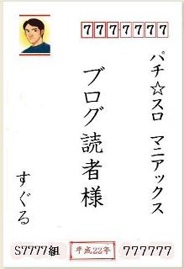 7777777
パチ☆スロ マニアックス
ブログ読者様
すぐる
S7777組
平成22年
777777